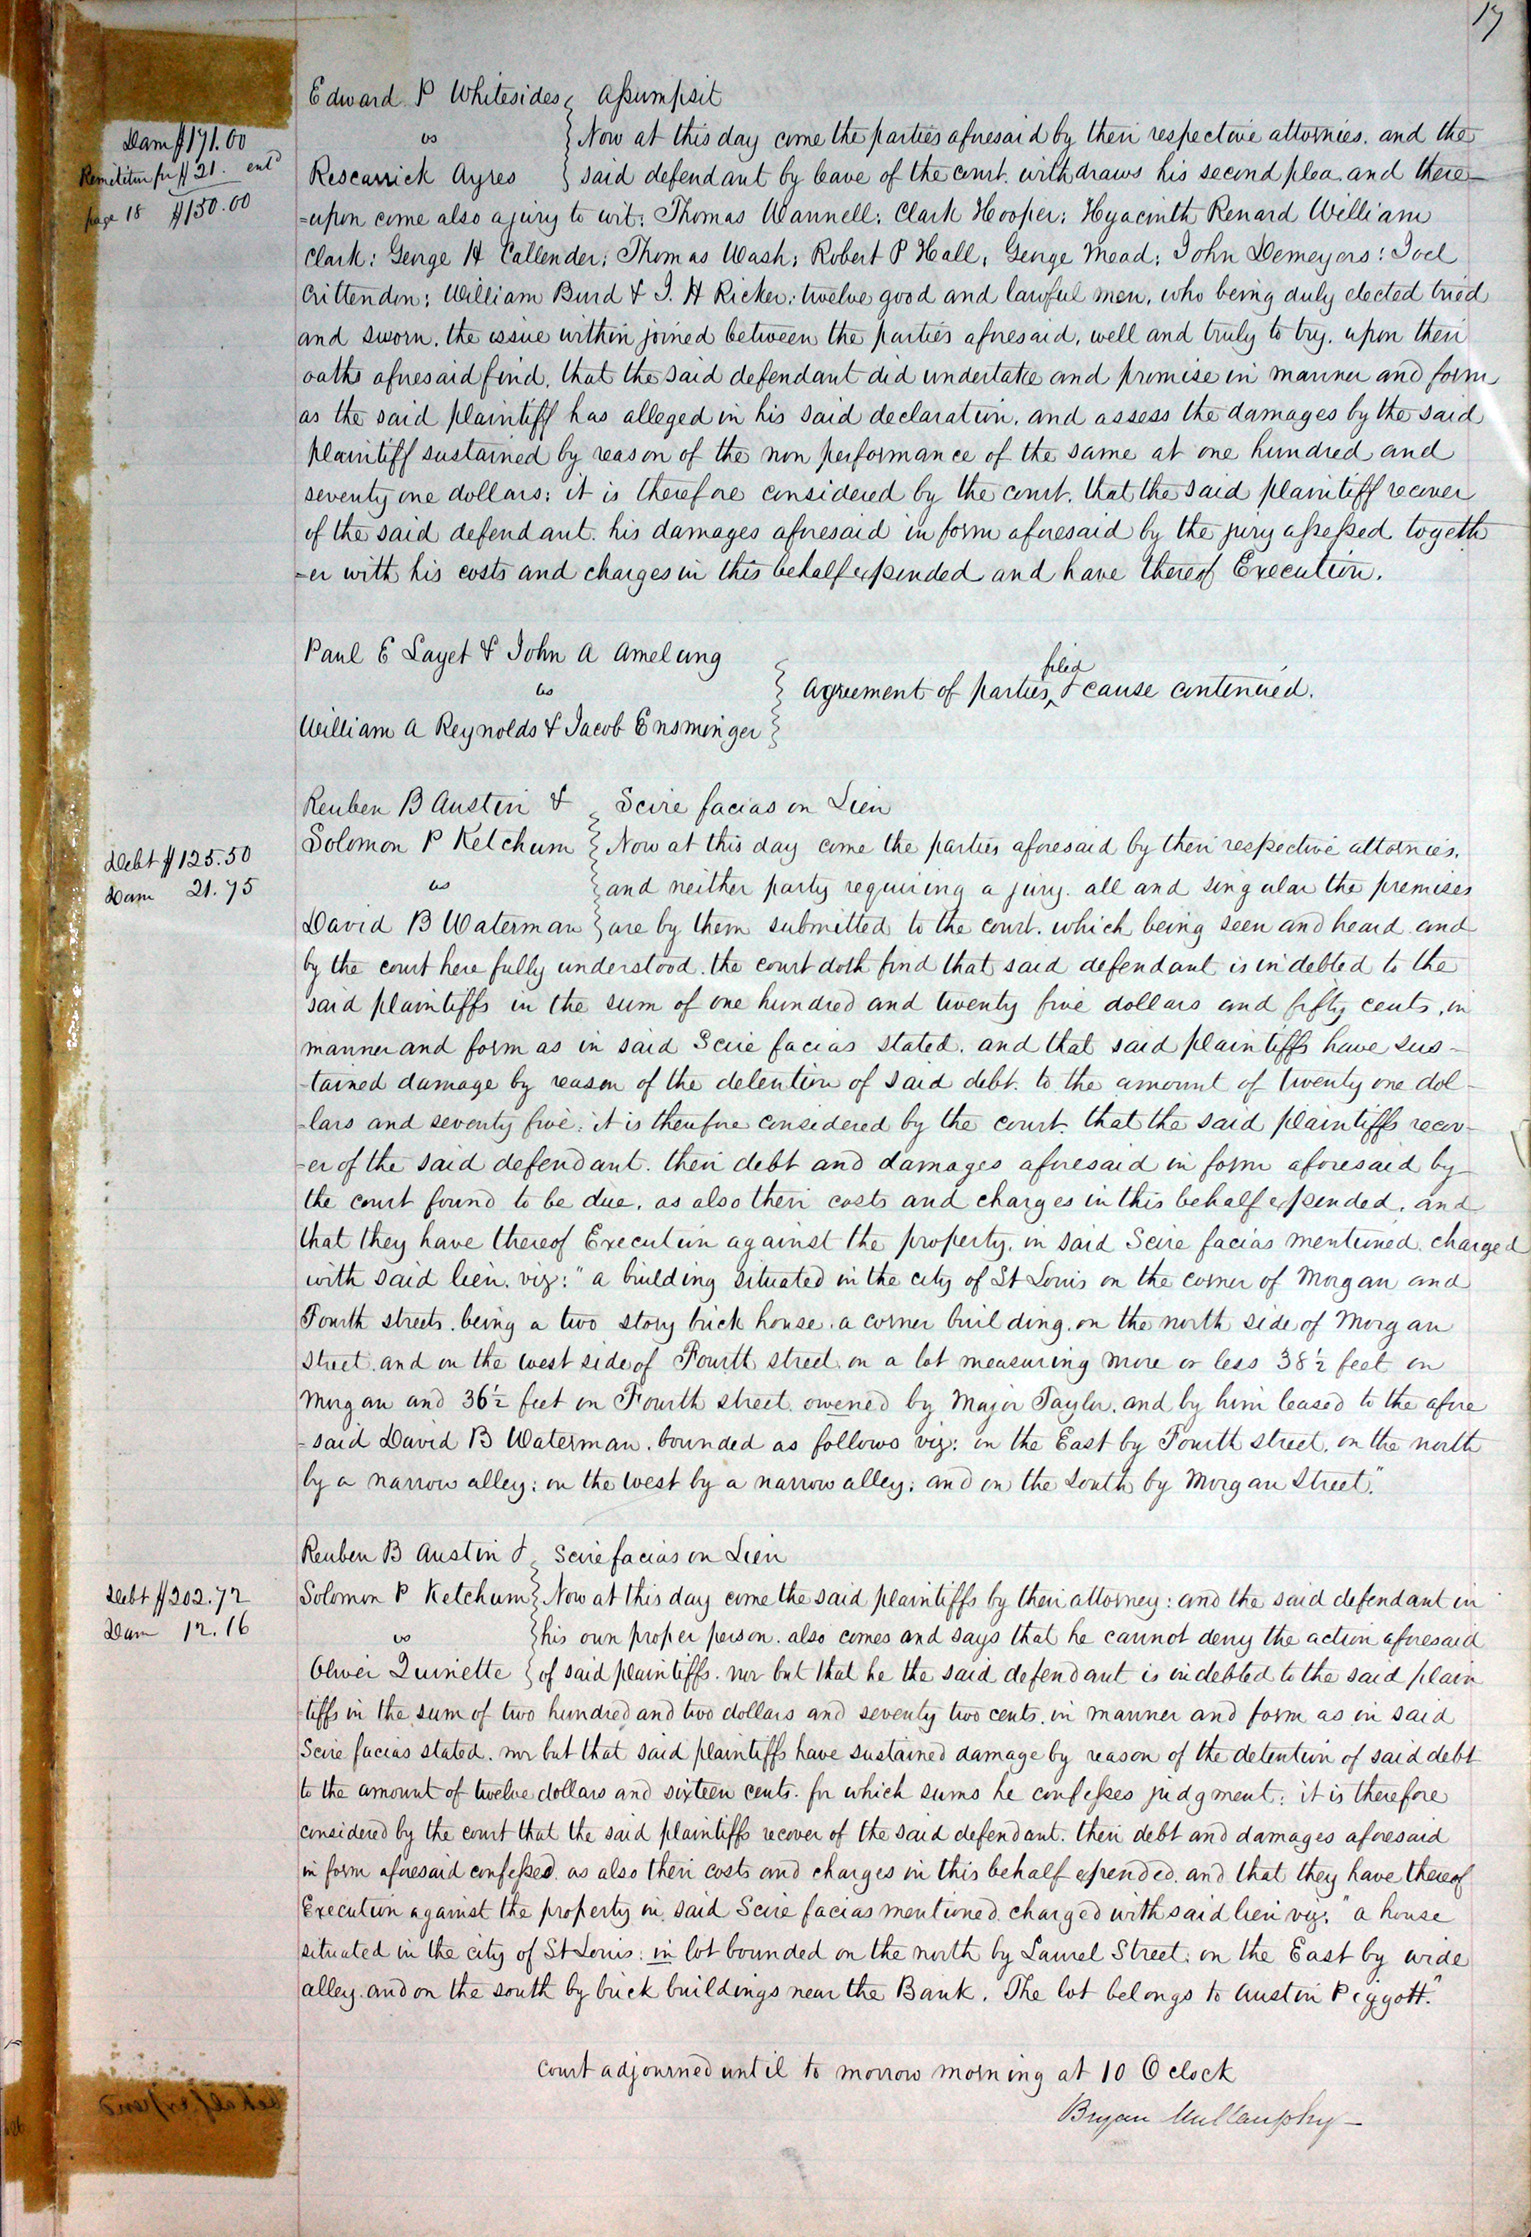 17
Edward P Whitesides Assumpsit
Dam $171.00
vs Now at this day come the parties aforesaid by their respective attornies. and the
Remititur for $21. entd
Rescarrick Ayres said defendant by leave of the court. withdraws his second plea. and there=
page 18 $150.00
=upon come also a jury to wit: Thomas Wannell: Clark Hooper: Hyacinth Renard William
Clark: George H Callender: Thomas Wash: Robert P Hall: George Mead: John Demeyers: Joel
Crittenden: William Burd & J. H Ricker: twelve good and lawful men, who being duly elected tried
and sworn. the issue within joined between the parties aforesaid, well and truly to try. upon their
oaths aforesaid find, that the said defendant did undertake and promise in manner and form
as the said plaintiff has alleged in his said declaration. and assess the damages by the said
plaintiff sustained by reason of the non performance of the same at one hundred and
seventy one dollars: it is therefore considered by the court. that the said plaintiff recover
of the said defendant. his damages aforesaid in form aforesaid by the jury assessed togeth
=er with his costs and charges in this behalf expended and have thereof Execution.
Paul E Layet & John A Amelung
vs Agreement of parties filed & cause contenued.
William A Reynolds & Jacob Ensminger
Reuben B Austin & Scire facias on Lien
Solomon P Ketchum Now at this day come the parties aforesaid by their respective attornies.
Debt $125.50
vs and neither party requiring a jury. all and singular the premises
Dam 21.75
David B Waterman are by them submitted to the court. which being seen and heard and
by the court here fully understood. the court doth find that said defendant is indebted to the
said plaintiffs in the sum of one hundred and twenty five dollars and fifty cents, in
manner and form as in said Scire facias stated. and that said plaintiffs have sus-
-tained damage by reason of the detention of said debt. to the amount of twenty one dol-
-lars and seventy five: it is therefore considered by the court. that the said plaintiffs recov-
-er of the said defendant. their debt and damages aforesaid in form aforesaid by
the court found to be due, as also their costs and charges in this behalf expended. and
that they have thereof Execution against the property. in said Scire facias mentioned. charged
with said lien. viz: "a building situated in the city of St Louis on the corner of Morgan and
Fourth streets. being a two story brick house. a corner building. on the north side of Morgan
street. and on the west side of Fourth street. on a lot measuring more or less 38½ feet on
Morgan and 36½ feet on Fourth street. owened by Major Taylor. and by him leased to the afore
-said David B Waterman. bounded as follows viz: on the East by Fourth street. on the north
by a narrow alley: on the West by a narrow alley: and on the South by Morgan Street."
Reuben B Austin & Scire facias on Lien
Debt $202.72
Solomon P Ketchum Now at this day come the said plaintiffs by their attorney: and the said defendant in
Dam 12.16
vs his own proper person. also comes and says that he cannot deny the action aforesaid
Oliver Quinette of said plaintiffs. nor but that he the said defendant is indebted to the said plain
-tiffs in the sum of two hundred and two dollars and seventy two cents. in manner and form as in said
Scire facias stated. nor but that said plaintiffs have sustained damage by reason of the detention of said debt
to the amount of twelve dollars and sixteen cents. for which sums he confesses judgment: it is therefore
considered by the court that the said plaintiffs recover of the said defendant. their debt and damages aforesaid
in form aforesaid confessed. as also their costs and charges in this behalf expended. and that they have thereof
Execution against the property in said Scire facias mentioned. charged with said lien viz: "a house
situated in the city of St Louis: in lot bounded on the north by Laurel Street: on the East by wide
alley. and on the south by brick buildings near the Bank. The lot belongs to Austin Piggott."
Court adjourned until to morrow morning at 10 O clock
Bryan Mullanphy